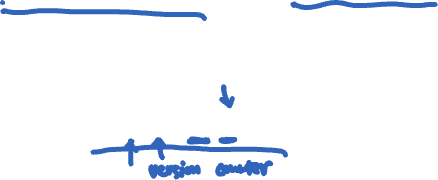 version counter